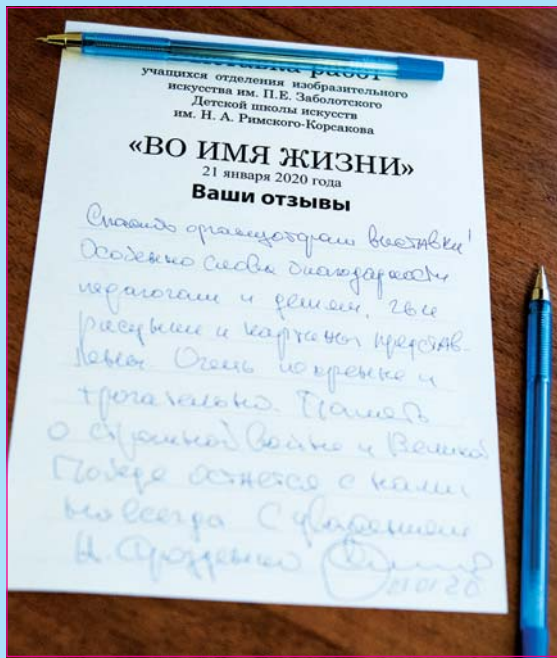 Выставка работ
учащихся отделения изобразительного
искусства им. П.Е. Заболотского
Детской школы искусств
им. Н. А. Римского-Корсакова
«ВО ИМЯ ЖИЗНИ»
21 января 2020 года
Ваши отзывы
Спасибо организаторам выставки!
Особенно слова благодарности
педагогам и детям, чьи
рисунки и картины представ-
лены. Очень искренне и
трогательно. Память
о страшной войне и Великой
Победе останется с нами
навсегда С уважением
Н. Дрозденко
21.01.20